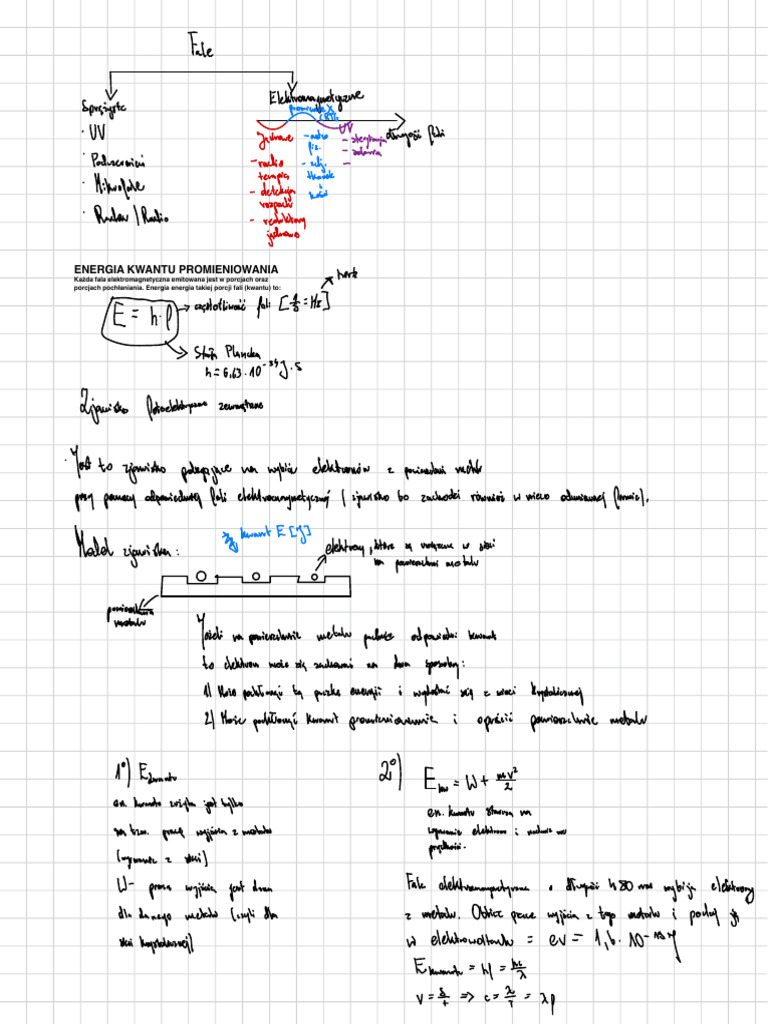 Fale
Sprężyste
Elektromagnetyczne
· UV
· Podczerwień
· Mikrofale
· Radar / Radio
długość fali
Jądrowe
- radio
terapia
- detekcja
rozpadu
- reaktory
jądrowe
UV
- sterylizacja
ENERGIA KWANTU PROMIENIOWANIA
Każda fala elektromagnetyczna emitowana jest w porcjach oraz
porcjach pochłaniania. Energia energia takiej porcji fali (kwantu) to:
E = h·f
częstotliwość fali [1/s = Hz]
herc
Stała Plancka
h = 6,63·10⁻³⁴ J·s
Zjawisko fotoelektryczne zewnętrzne
· Jest to zjawisko polegające na wybiciu elektronów z powierzchni metalu
przy pomocy odpowiedniej fali elektromagnetycznej (zjawisko to zachodzi również w nieco odmiennej formie).
Model zjawiska:
kwant E [J]
elektrony, które są związane w sieci
na powierzchni metalu
powierzchnia
metalu
Jeżeli na powierzchnie metalu padnie odpowiedni kwant
to elektron może się zachować na dwa sposoby:
1) Może pochłonąć tą paczkę energii i wyrwać się z sieci krystalicznej
2) Może pochłonąć kwant promieniowania i opuścić powierzchnie metalu
1°) E kwantu
en. kwantu zużyta jest tylko
na tzw. pracę wyjścia z metalu
(wyrwanie z sieci)
W- praca wyjścia jest dana
dla danego metalu (czyli dla
sieci krystalicznej)
2°) E kw = W + mv²/2
en. kwantu starcza na
wyrwanie elektronu i nadanie mu
prędkości.
Fala elektromagnetyczna o długość 480 nm wybija elektrony
z metalu. Oblicz prace wyjścia z tego metalu i podaj ją
w elektrowoltach = eV = 1,6·10⁻¹⁹ J
E kwantu = hf = hc/λ
v = s/t => c = λ/T = λf